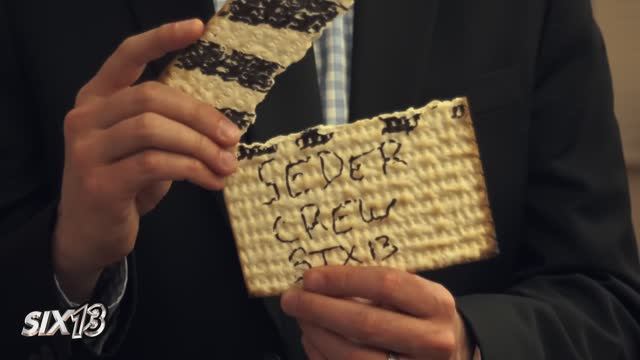 SEDER
CREW
STX13
SIX13